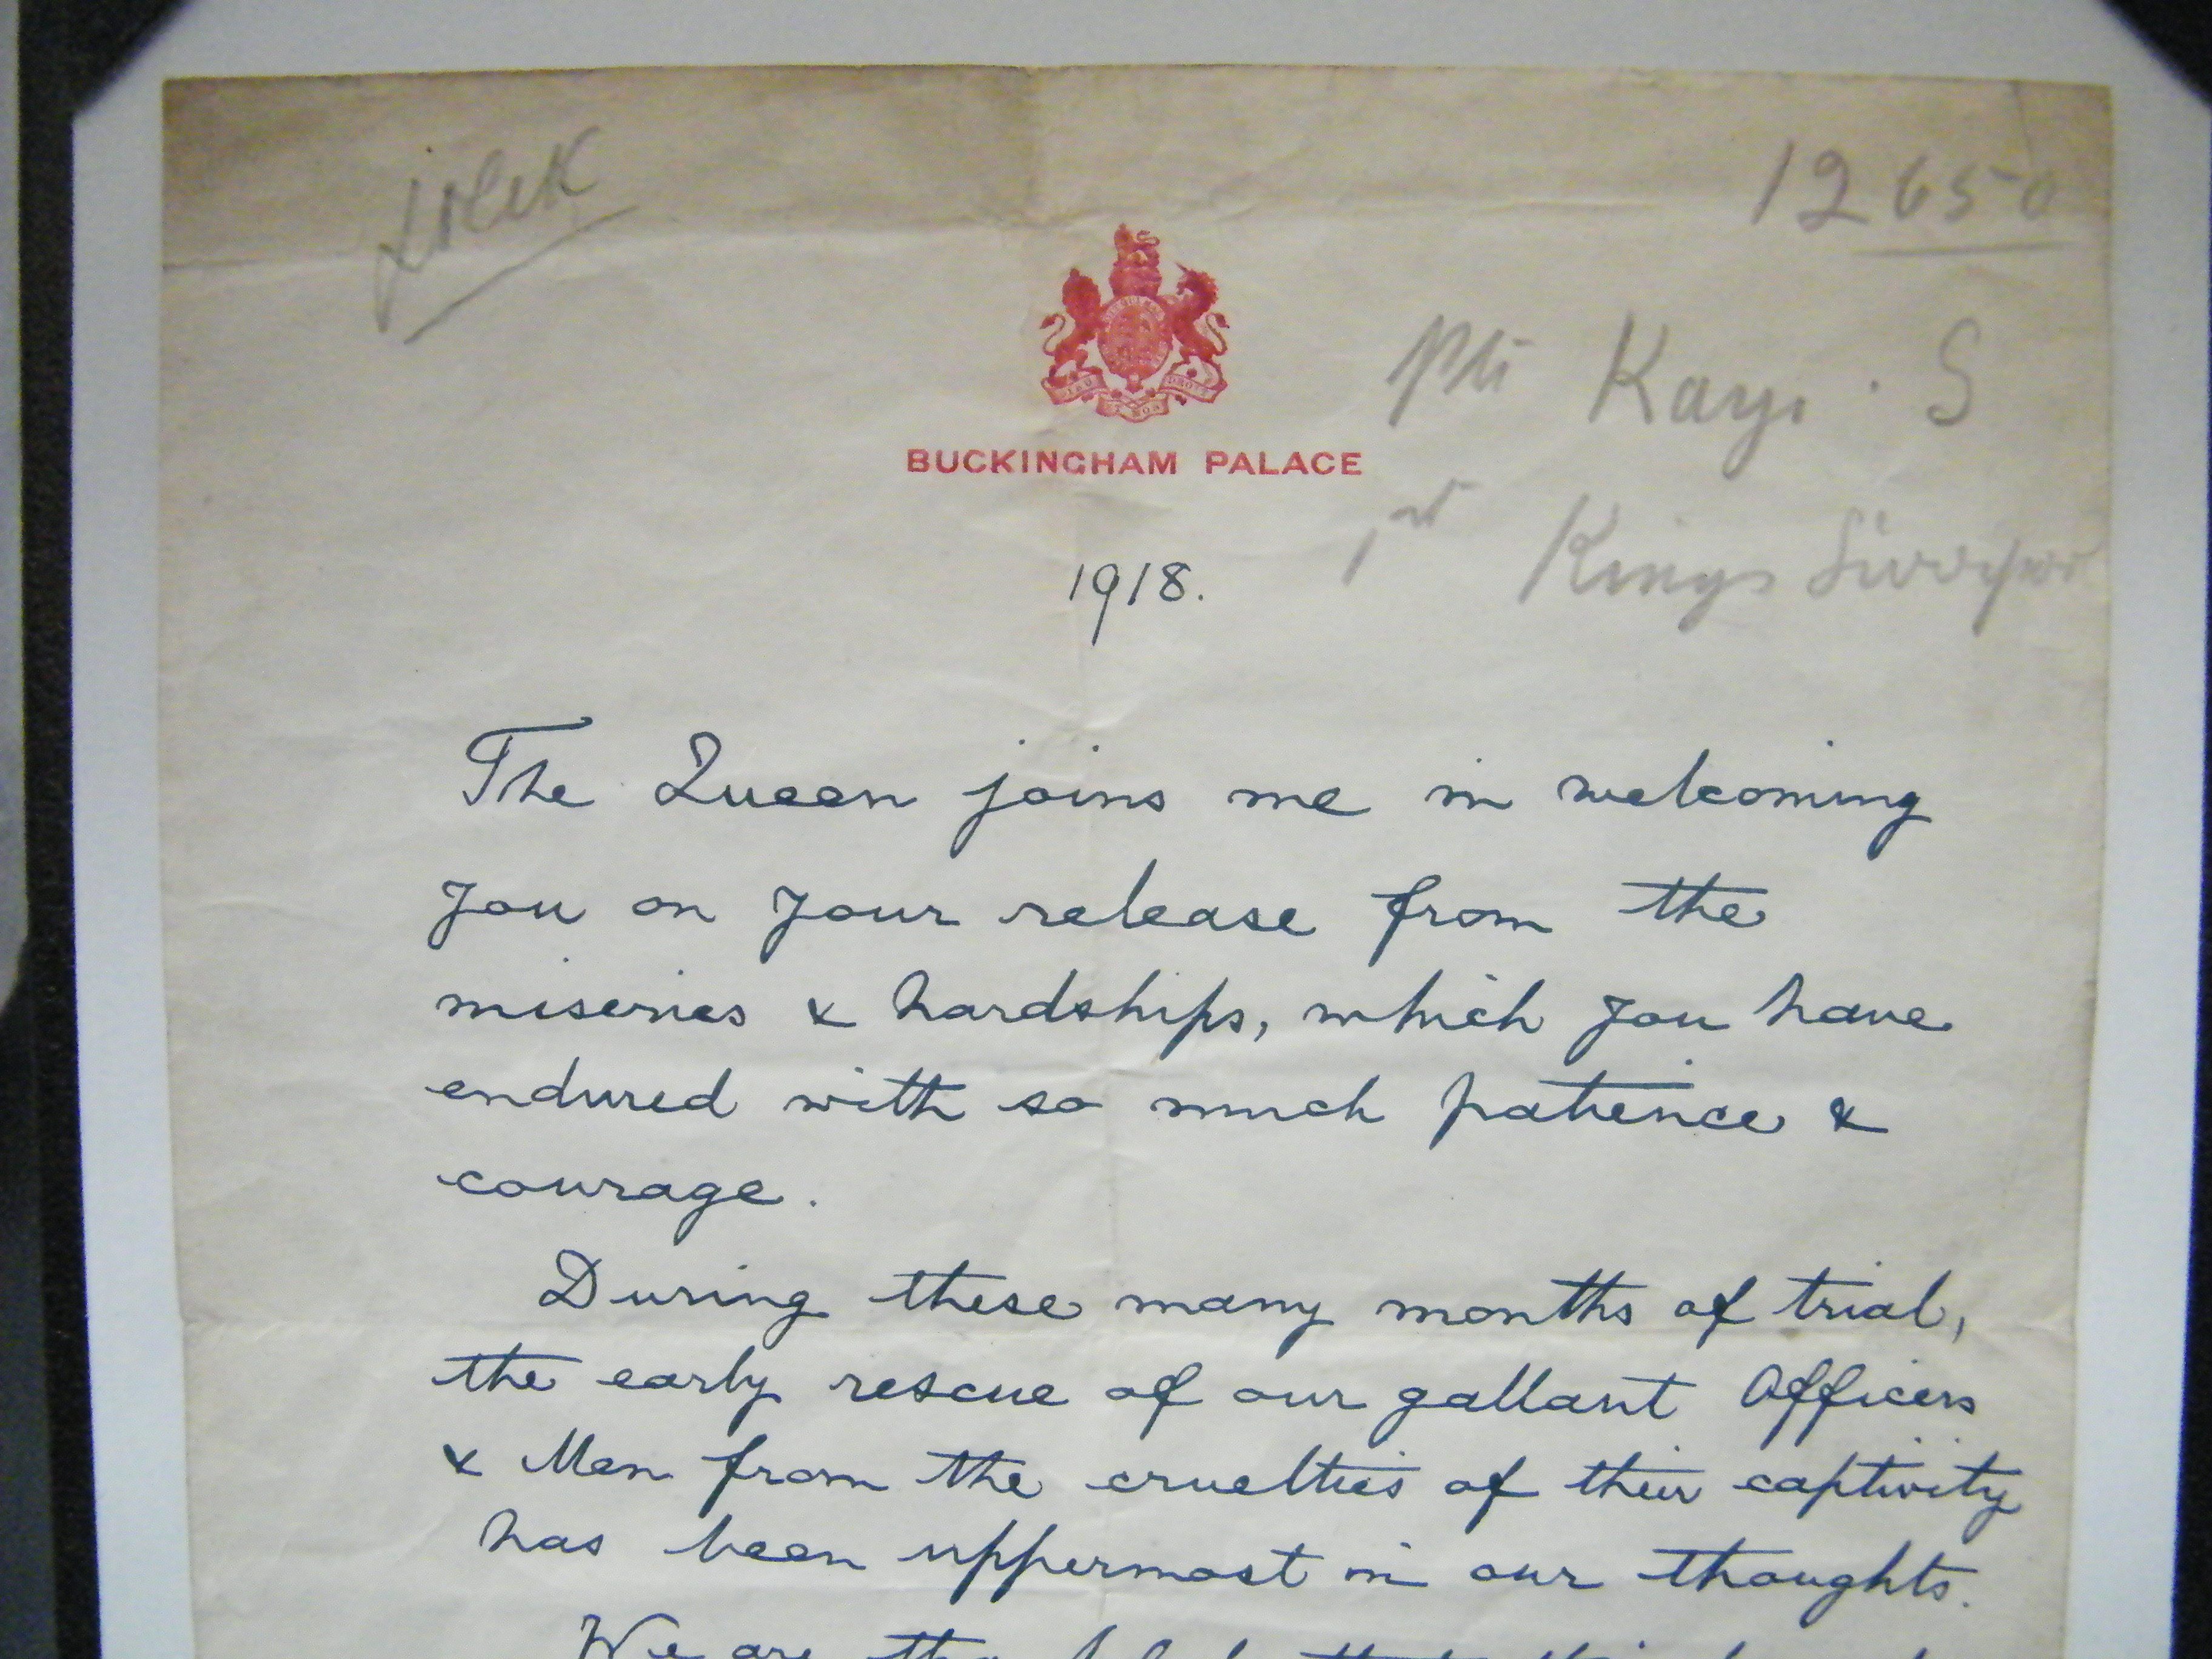 12650
Pte Kaye. S
BUCKINGHAM PALACE
1st Kings Liverpool
1918.
The Queen joins me in welcoming
you on your release from the
miseries & hardships, which you have
endured with so much patience &
courage.
During these many months of trial,
the early rescue of our gallant Officers
& Men from the cruelties of their captivity
has been uppermost in our thoughts.
We are